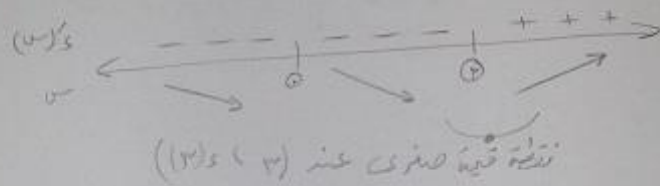 د'(س) − − − − − − − + + +
س ٠ ٣
نقطة قيمة صغرى عند (٣ ، د(٣))